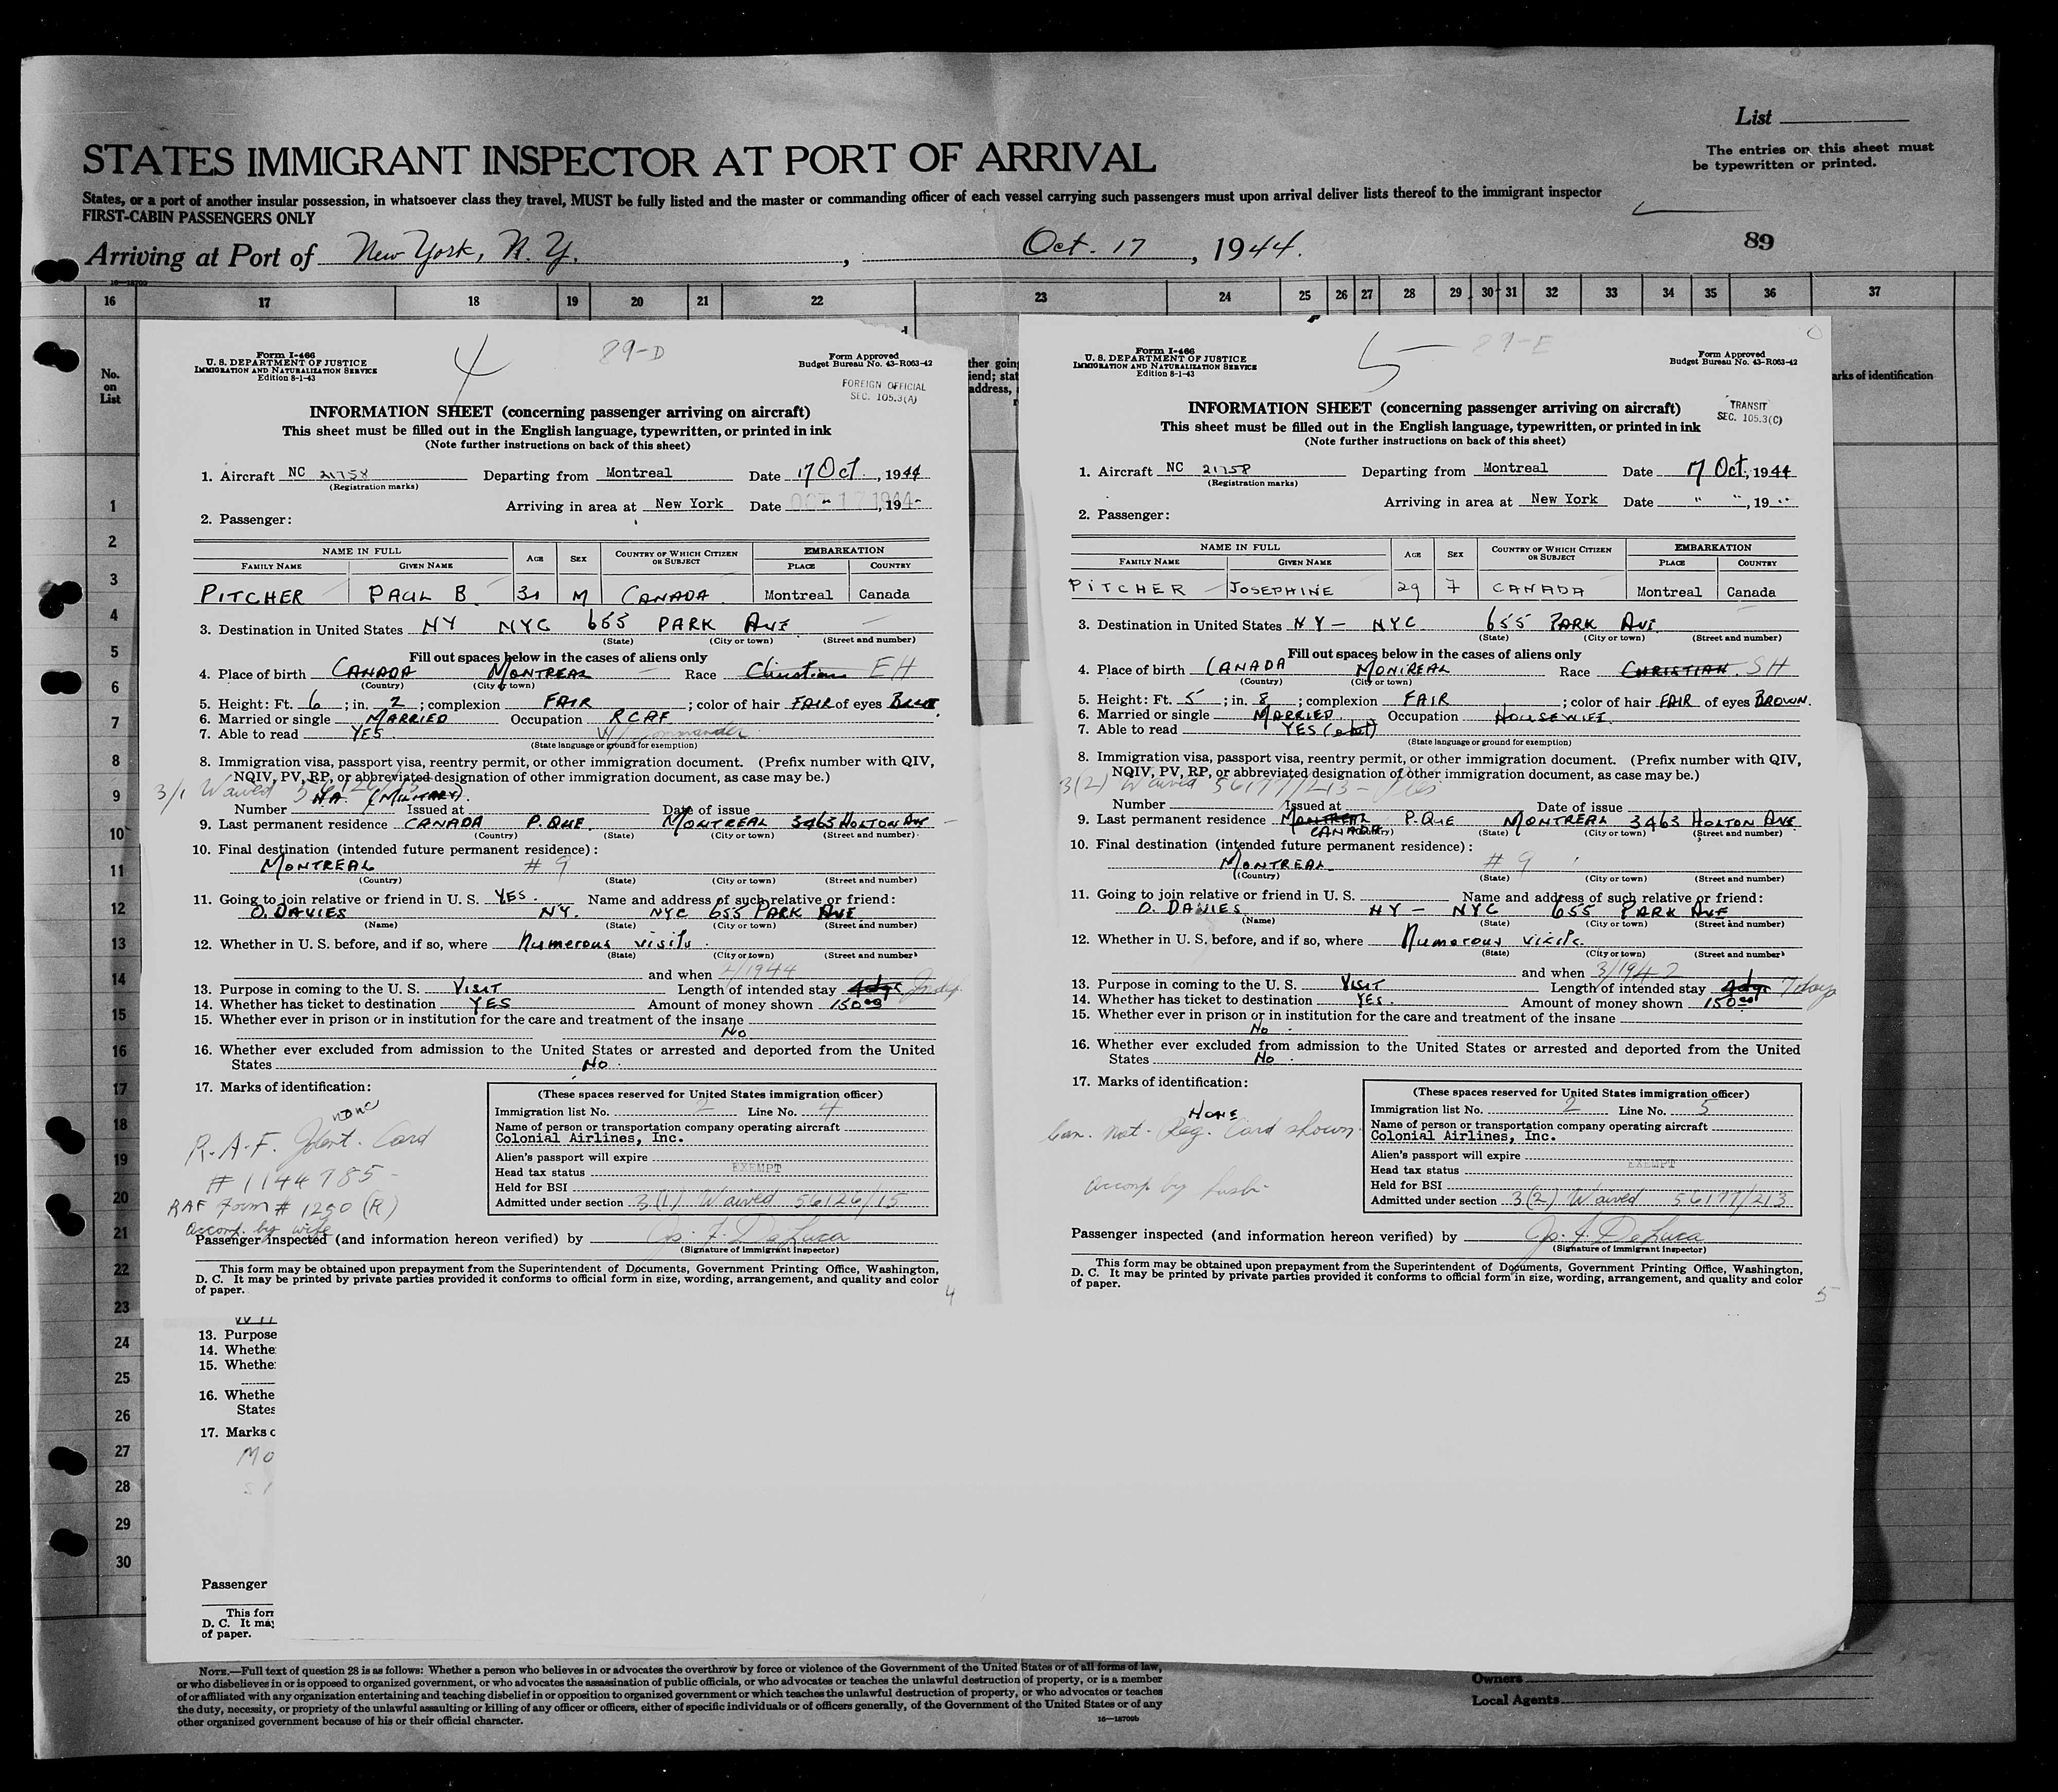 List
The entries on this sheet must
be typewritten or printed.
STATES IMMIGRANT INSPECTOR AT PORT OF ARRIVAL
States, or a port of another insular possession, in whatsoever class they travel, MUST be fully listed and the master or commanding officer of each vessel carrying such passengers must upon arrival deliver lists thereof to the immigrant inspector
FIRST-CABIN PASSENGERS ONLY
89
Arriving at Port of New York, N.Y., Oct. 17, 1944.
16 17 18 19 20 21 22 23 24 25 26 27 28 29 30 31 32 33 34 35 36 37
No.
on
List
1
2
3
4
5
6
7
8
9
10
11
12
13
14
15
16
17
18
19
20
21
22
23
24
25
26
27
28
29
30
4
89-D
Form I-466
U. S. DEPARTMENT OF JUSTICE
IMMIGRATION AND NATURALIZATION SERVICE
Edition 8-1-43
Form Approved
Budget Bureau No. 43-R063-42
FOREIGN OFFICIAL
SEC. 105.3(A)
INFORMATION SHEET (concerning passenger arriving on aircraft)
This sheet must be filled out in the English language, typewritten, or printed in ink
(Note further instructions on back of this sheet)
1. Aircraft NC 21758 Departing from Montreal Date 17 Oct., 1944
(Registration marks)
Arriving in area at New York Date OCT 17 1944, 19
2. Passenger:
NAME IN FULL AGE SEX COUNTRY OF WHICH CITIZEN OR SUBJECT EMBARKATION
FAMILY NAME GIVEN NAME PLACE COUNTRY
PITCHER PAUL B. 31 M CANADA Montreal Canada
3. Destination in United States NY NYC 655 PARK AVE
(State) (City or town) (Street and number)
Fill out spaces below in the cases of aliens only
4. Place of birth CANADA MONTREAL Race Christian EH
(Country) (City or town)
5. Height: Ft. 6; in. 2; complexion FAIR; color of hair FAIR of eyes BLUE.
6. Married or single MARRIED Occupation RCAF
7. Able to read YES W/Commander
(State language or ground for exemption)
8. Immigration visa, passport visa, reentry permit, or other immigration document. (Prefix number with QIV,
NQIV, PV, RP, or abbreviated designation of other immigration document, as case may be.)
3/1 Waived 56126/15
NA (MILITARY).
Number Issued at Date of issue
9. Last permanent residence CANADA P.QUE. MONTREAL 3463 HOLTON AVE
(Country) (State) (City or town) (Street and number)
10. Final destination (intended future permanent residence):
MONTREAL # 9
(Country) (State) (City or town) (Street and number)
11. Going to join relative or friend in U. S. YES. Name and address of such relative or friend:
O. DAVIES NY. NYC 655 PARK AVE
(Name) (State) (City or town) (Street and number)
12. Whether in U. S. before, and if so, where Numerous visits.
(State) (City or town) (Street and number)
and when 2/1944
13. Purpose in coming to the U. S. VISIT Length of intended stay 4 dys
14. Whether has ticket to destination YES Amount of money shown 150.00
15. Whether ever in prison or in institution for the care and treatment of the insane
No
16. Whether ever excluded from admission to the United States or arrested and deported from the United
States No.
17. Marks of identification:
none
R.A.F. Ident. Card
# 1144785-
RAF Form # 1250 (R)
Accomp. by wife
(These spaces reserved for United States immigration officer)
Immigration list No. 2 Line No. 4
Name of person or transportation company operating aircraft
Colonial Airlines, Inc.
Alien's passport will expire
Head tax status EXEMPT
Held for BSI
Admitted under section 3(1) Waived 56126/15
Passenger inspected (and information hereon verified) by Jos. F. DeLuca
(Signature of immigrant inspector)
This form may be obtained upon prepayment from the Superintendent of Documents, Government Printing Office, Washington,
D. C. It may be printed by private parties provided it conforms to official form in size, wording, arrangement, and quality and color
of paper.
4
ther going
iend; stat
address,
5
89-E
Form I-466
U. S. DEPARTMENT OF JUSTICE
IMMIGRATION AND NATURALIZATION SERVICE
Edition 8-1-43
Form Approved
Budget Bureau No. 43-R063-42
TRANSIT
SEC. 105.3(C)
INFORMATION SHEET (concerning passenger arriving on aircraft)
This sheet must be filled out in the English language, typewritten, or printed in ink
(Note further instructions on back of this sheet)
1. Aircraft NC 21758 Departing from Montreal Date 17 Oct., 1944
(Registration marks)
Arriving in area at New York Date " ", 19 "
2. Passenger:
NAME IN FULL AGE SEX COUNTRY OF WHICH CITIZEN OR SUBJECT EMBARKATION
FAMILY NAME GIVEN NAME PLACE COUNTRY
PITCHER JOSEPHINE 29 F CANADA Montreal Canada
3. Destination in United States NY - NYC 655 PARK AVE.
(State) (City or town) (Street and number)
Fill out spaces below in the cases of aliens only
4. Place of birth CANADA MONTREAL Race CHRISTIAN. SH
(Country) (City or town)
5. Height: Ft. 5; in. 8; complexion FAIR; color of hair FAIR of eyes BROWN.
6. Married or single MARRIED. Occupation HOUSEWIFE.
7. Able to read YES
(State language or ground for exemption)
8. Immigration visa, passport visa, reentry permit, or other immigration document. (Prefix number with QIV,
NQIV, PV, RP, or abbreviated designation of other immigration document, as case may be.)
3(2) Waived 56177/213-
Number Issued at Date of issue
9. Last permanent residence MONTREAL CANADA P.QUE MONTREAL 3463 HOLTON AVE.
(Country) (State) (City or town) (Street and number)
10. Final destination (intended future permanent residence):
MONTREAL # 9
(Country) (State) (City or town) (Street and number)
11. Going to join relative or friend in U. S. Name and address of such relative or friend:
O. DAVIES NY - NYC 655 PARK AVE
(Name) (State) (City or town) (Street and number)
12. Whether in U. S. before, and if so, where Numerous visits.
(State) (City or town) (Street and number)
and when 3/1942
13. Purpose in coming to the U. S. VISIT Length of intended stay 4 dys 7 days
14. Whether has ticket to destination YES. Amount of money shown 150.00
15. Whether ever in prison or in institution for the care and treatment of the insane
No.
16. Whether ever excluded from admission to the United States or arrested and deported from the United
States No.
17. Marks of identification:
NONE
Can. Nat. Reg. Card shown.
Accomp by husb.
(These spaces reserved for United States immigration officer)
Immigration list No. 2 Line No. 5
Name of person or transportation company operating aircraft
Colonial Airlines, Inc.
Alien's passport will expire
Head tax status EXEMPT
Held for BSI
Admitted under section 3(2) Waived 56177/213
Passenger inspected (and information hereon verified) by Jos. F. DeLuca
(Signature of immigrant inspector)
This form may be obtained upon prepayment from the Superintendent of Documents, Government Printing Office, Washington,
D. C. It may be printed by private parties provided it conforms to official form in size, wording, arrangement, and quality and color
of paper.
5
arks of identification
13. Purpose
14. Whethe
15. Whethe
16. Whethe
States
17. Marks c
Mo
Passenger
This forr
D. C. It may
of paper.
NOTE.—Full text of question 28 is as follows: Whether a person who believes in or advocates the overthrow by force or violence of the Government of the United States or of all forms of law,
or who disbelieves in or is opposed to organized government, or who advocates the assassination of public officials, or who advocates or teaches the unlawful destruction of property, or is a member
of or affiliated with any organization entertaining and teaching disbelief in or opposition to organized government or which teaches the unlawful destruction of property, or who advocates or teaches
the duty, necessity, or propriety of the unlawful assaulting or killing of any officer or officers, either of specific individuals or of officers generally, of the Government of the United States or of any
other organized government because of his or their official character.
16—18709b
Owners
Local Agents